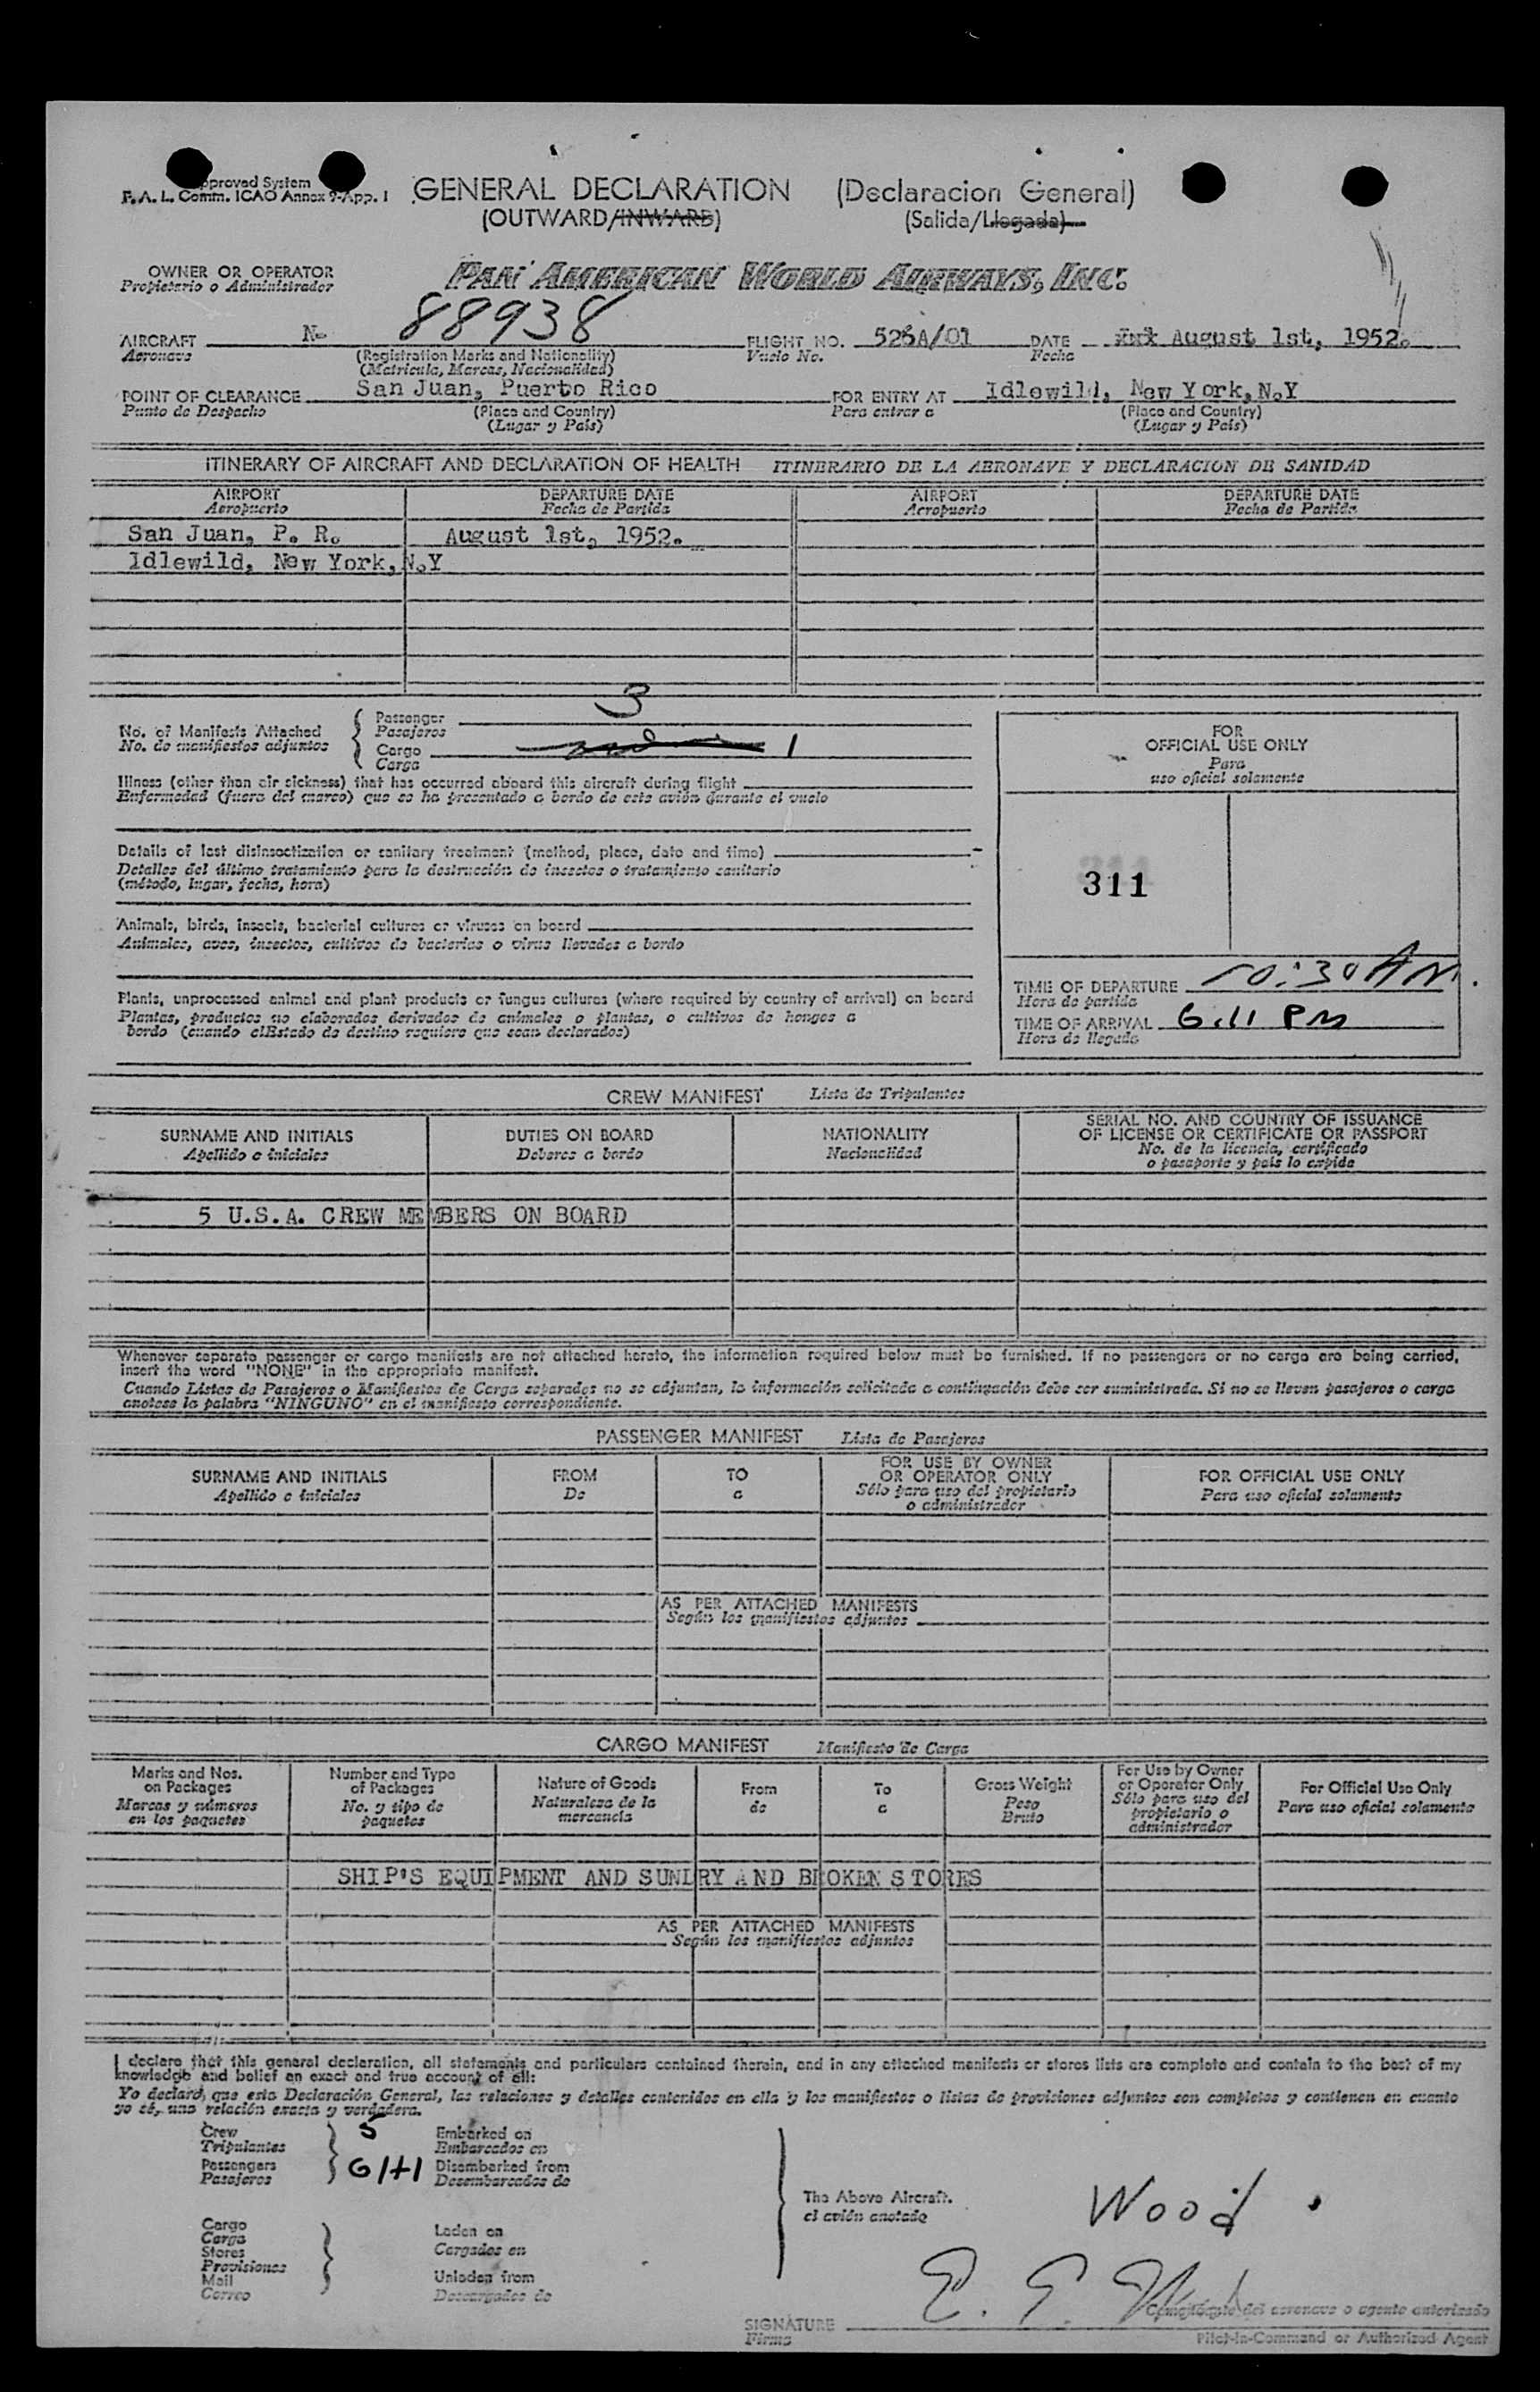 Approved System
F. A. L. Comm. ICAO Annex 9-App. I
GENERAL DECLARATION (Declaracion General)
(OUTWARD/INWARD) (Salida/Llegada)
OWNER OR OPERATOR
Propietario o Administrador
PAN AMERICAN WORLD AIRWAYS, INC.
AIRCRAFT N- 88938 FLIGHT NO. DATE August 1st, 1952.
Aeronave (Registration Marks and Nationality) Vuelo No. Fecha
(Matricula, Marcas, Nacionalidad)
POINT OF CLEARANCE San Juan, Puerto Rico FOR ENTRY AT Idlewild, New York, N.Y
Punto de Despacho (Place and Country) Para entrar a (Place and Country)
(Lugar y País) (Lugar y País)
ITINERARY OF AIRCRAFT AND DECLARATION OF HEALTH ITINERARIO DE LA AERONAVE Y DECLARACION DE SANIDAD
AIRPORT DEPARTURE DATE AIRPORT DEPARTURE DATE
Aeropuerto Fecha de Partida Aeropuerto Fecha de Partida
San Juan, P. R. August 1st, 1952.
Idlewild, New York, N.Y
No. of Manifests Attached
No. de manifiestos adjuntos
Passenger 3
Pasajeros
Cargo 1
Carga
Illness (other than air sickness) that has occurred aboard this aircraft during flight
Enfermedad (fuera del mareo) que se ha presentado a bordo de este avión durante el vuelo
Details of last disinsectization or sanitary treatment (method, place, date and time)
Detalles del último tratamiento para la destrucción de insectos o tratamiento sanitario
(método, lugar, fecha, hora)
Animals, birds, insects, bacterial cultures or viruses on board
Animales, aves, insectos, cultivos de bacterias o virus llevados a bordo
Plants, unprocessed animal and plant products or fungus cultures (where required by country of arrival) on board
Plantas, productos no elaborados derivados de animales o plantas, o cultivos de hongos a
bordo (cuando elEstado de destino requiere que sean declarados)
FOR
OFFICIAL USE ONLY
Para
uso oficial solamente
311
TIME OF DEPARTURE 10:30 AM.
Hora de partida
TIME OF ARRIVAL 6.11 PM
Hora de llegada
CREW MANIFEST Lista de Tripulantes
SURNAME AND INITIALS DUTIES ON BOARD NATIONALITY SERIAL NO. AND COUNTRY OF ISSUANCE
Apellido e iniciales Deberes a bordo Nacionalidad OF LICENSE OR CERTIFICATE OR PASSPORT
No. de la licencia, certificado
o pasaporte y país lo expide
5 U.S.A. CREW MEMBERS ON BOARD
Whenever separate passenger or cargo manifests are not attached hereto, the information required below must be furnished. If no passengers or no cargo are being carried,
insert the word "NONE" in the appropriate manifest.
Cuando Listas de Pasajeros o Manifiestos de Carga separados no se adjuntan, la información solicitada a continuación debe ser suministrada. Si no se lleven pasajeros o carga
anotese la palabra "NINGUNO" en el manifiesto correspondiente.
PASSENGER MANIFEST Lista de Pasajeros
SURNAME AND INITIALS FROM TO FOR USE BY OWNER FOR OFFICIAL USE ONLY
Apellido e iniciales De a OR OPERATOR ONLY Para uso oficial solamente
Sólo para uso del propietario
o administrador
AS PER ATTACHED MANIFESTS
Según los manifiestos adjuntos
CARGO MANIFEST Manifiesto de Carga
Marks and Nos.
on Packages
Marcas y números
en los paquetes
Number and Type
of Packages
No. y tipo de
paquetes
Nature of Goods
Naturaleza de la
mercancía
From
de
To
a
Gross Weight
Peso
Bruto
For Use by Owner
or Operator Only
Sólo para uso del
propietario o
administrador
For Official Use Only
Para uso oficial solamente
SHIP'S EQUIPMENT AND SUNDRY AND BROKEN STORES
AS PER ATTACHED MANIFESTS
Según los manifiestos adjuntos
I declare that this general declaration, all statements and particulars contained therein, and in any attached manifests or stores lists are complete and contain to the best of my
knowledge and belief an exact and true account of all:
Yo declaró, que esta Declaración General, las relaciones y detalles contenidos en ella y los manifiestos o listas de provisiones adjuntos son completos y contienen en cuanto
yo sé, una relación exacta y verdadera.
Crew 5 Embarked on
Tripulantes Embarcados en
Passengers 61+1 Disembarked from
Pasajeros Desembarcados de
The Above Aircraft.
el avión anotado
Cargo
Carga
Stores
Provisiones
Mail
Correo
Laden on
Cargados en
Unladen from
Descargados de
Wood
E. E. Wood
SIGNATURE
Firma
Comandante del aeronave o agente autorizado
Pilot-in-Command or Authorized Agent